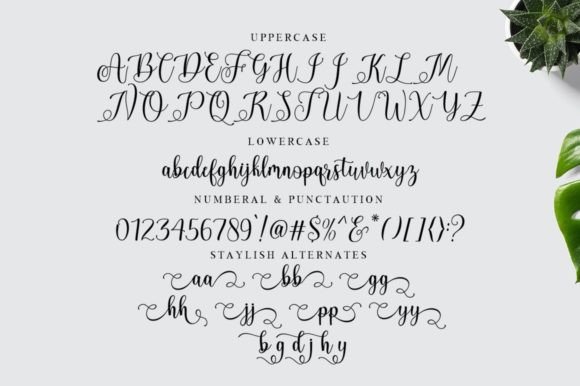 UPPERCASE
ABCDEFGHIJKLM
NOPQRSTUVWXYZ
LOWERCASE
abcdefghijklmnopqrstuvwxyz
NUMBERAL & PUNCTAUTION
0123456789'!@#$%^&*()[]{}:?
STAYLISH ALTERNATES
aa bb gg
hh jj pp yy
b g d j h y